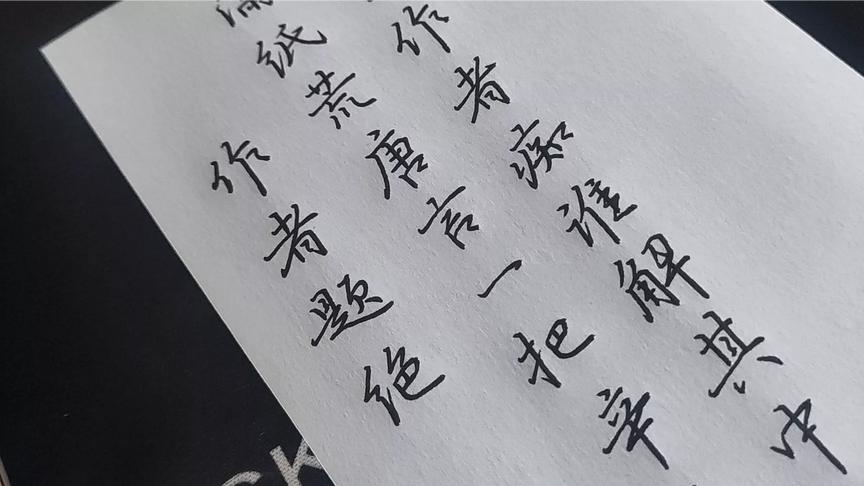 作者题绝
纸荒唐言一把辛
作者痴谁解其中
CK